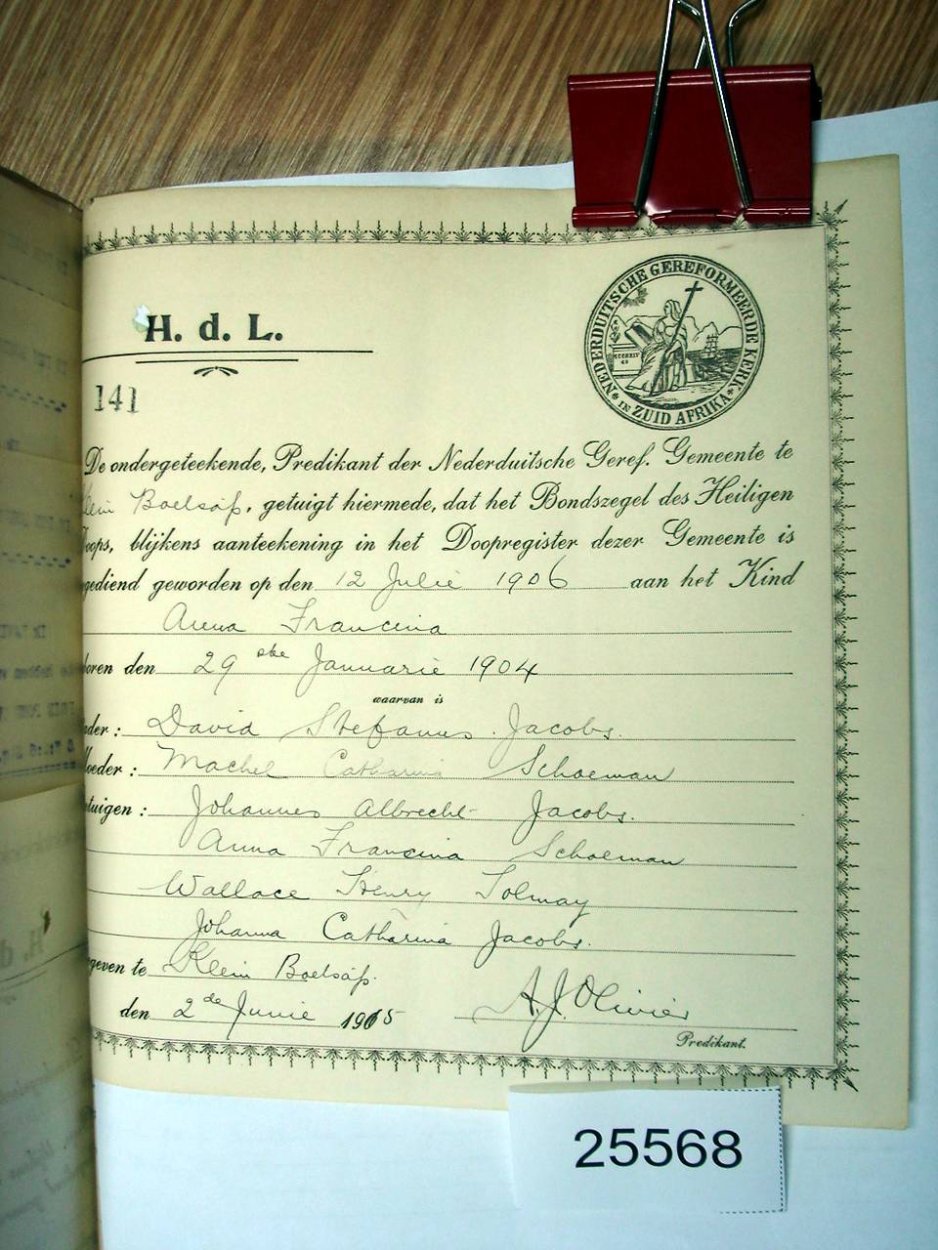 NEDERDUITSCHE GEREFORMEERDE KERK
IN ZUID AFRIKA
H. d. L.
141
De ondergeteekende, Predikant der Nederduitsche Geref. Gemeente te
lein Boetsap, getuigt hiermede, dat het Bondszegel des Heiligen
oops, blijkens aanteekening in het Doopregister dezer Gemeente is
gediend geworden op den 12 Julie 1906 aan het Kind
Anna Francina
boren den 29ste Januarie 1904
waarvan is
ader: David Stefanus Jacobs.
oeder: Machel Catharina Schoeman
tuigen: Johannes Albrecht Jacobs.
Anna Francina Schoeman
Wallace Henry Tolmay
Johanna Catharina Jacobs.
geven te Klein Boetsap.
den 2de Junie 1965 A. J. Olivier
Predikant.
25568